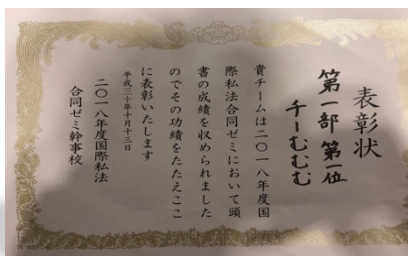 表彰状
第一部 第一位
チーむむむ
貴チームは二〇一八年度国
際私法合同ゼミにおいて頭
書の成績を収められました
のでその功績をたたえここ
に表彰いたします
平成三十年十月十三日
二〇一八年度国際私法
合同ゼミ幹事校